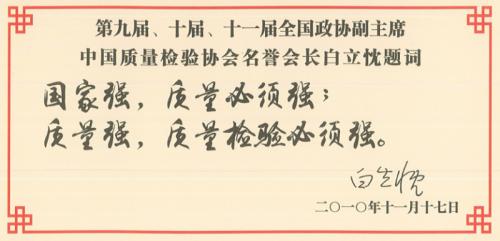 第九届、十届、十一届全国政协副主席
中国质量检验协会名誉会长白立忱题词
国家强，质量必须强；
质量强，质量检验必须强。
白立忱
二〇一〇年十一月十七日